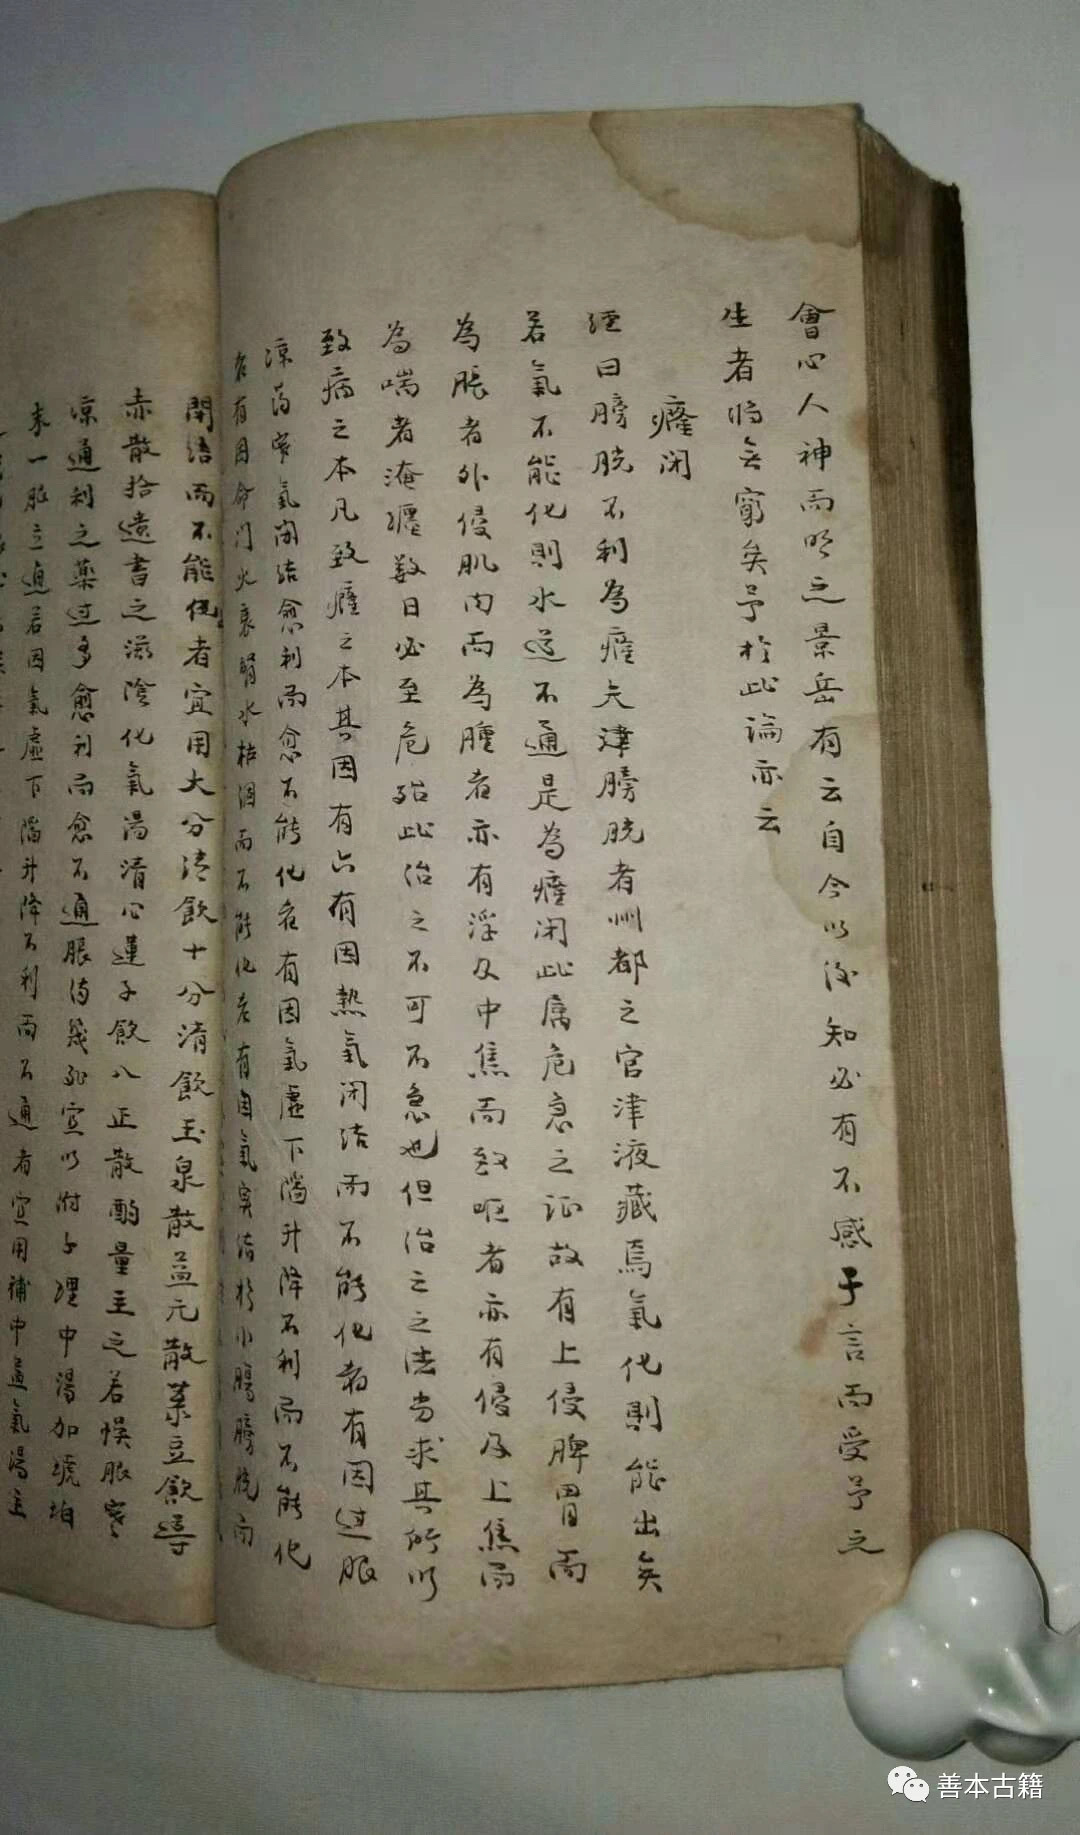 會心人神而明之景岳有云自今以後知必有不感予言而受予之
生者將無窮矣予於此論亦云
癃闭
經曰膀胱不利為癃夫津膀胱者州都之官津液藏焉氣化則能出矣
若氣不能化則水道不通是為癃闭此属危急之证故有上侵脾胃而
為脹者外侵肌肉而為腫者亦有淫及中焦而致呕者亦有侵及上焦而
為喘者淹纏数日必至危殆此治之不可不急也但治之之法当求其所以
致病之本凡致癃之本其因有六有因熱氣闭结而不能化者有因过服
凉药寒氣闭结愈利而愈不能化者有因氣虛下陷升降不利而不能化
者有因命门火衰腎水枯涸而不能化者有因氣实结於小腸膀胱而
闭结而不能化者宜用大分清飲十分清飲玉泉散益元散菉豆飲導
赤散拾遗書之滋陰化氣湯清心蓮子飲八正散酌量主之若悞服寒
凉通利之藥过多愈利而愈不通脹满幾死宜以附子理中湯加琥珀
末一服立通若因氣虛下陷升降不利而不通者宜用補中益氣湯主